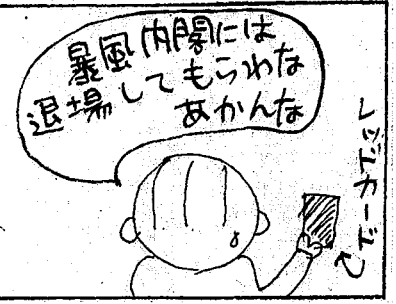 暴風内閣には
退場してもらわな
あかんな
レッドカード